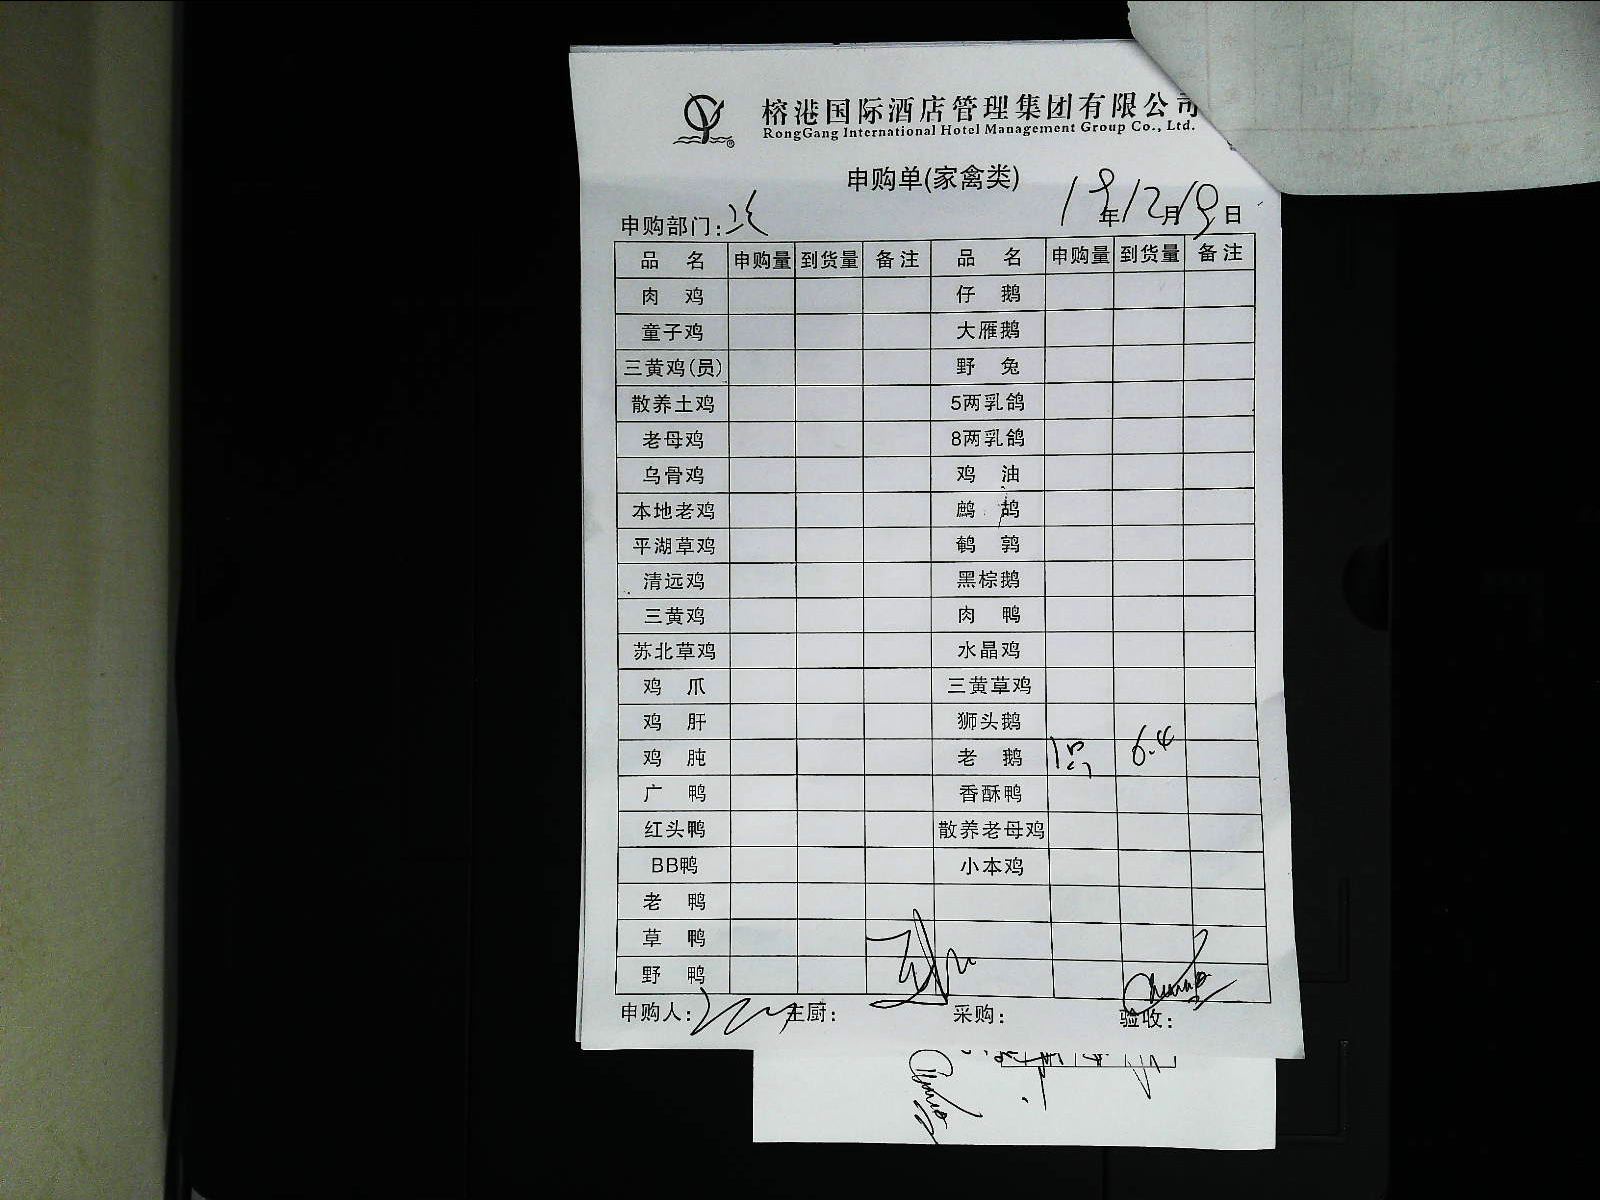 榕港国际酒店管理集团有限公司
RongGang International Hotel Management Group Co., Ltd.
申购单(家禽类)
申购部门: 年12月 日
品 名 申购量 到货量 备注 品 名 申购量 到货量 备注
肉 鸡 仔 鹅
童子鸡 大雁鹅
三黄鸡(员) 野 兔
散养土鸡 5两乳鸽
老母鸡 8两乳鸽
乌骨鸡 鸡 油
本地老鸡 鹧 鸪
平湖草鸡 鹌 鹑
清远鸡 黑棕鹅
三黄鸡 肉 鸭
苏北草鸡 水晶鸡
鸡 爪 三黄草鸡
鸡 肝 狮头鹅
鸡 肫 老 鹅 1只 6.4
广 鸭 香酥鸭
红头鸭 散养老母鸡
BB鸭 小本鸡
老 鸭
草 鸭
野 鸭
申购人: 主厨: 采购: 验收: